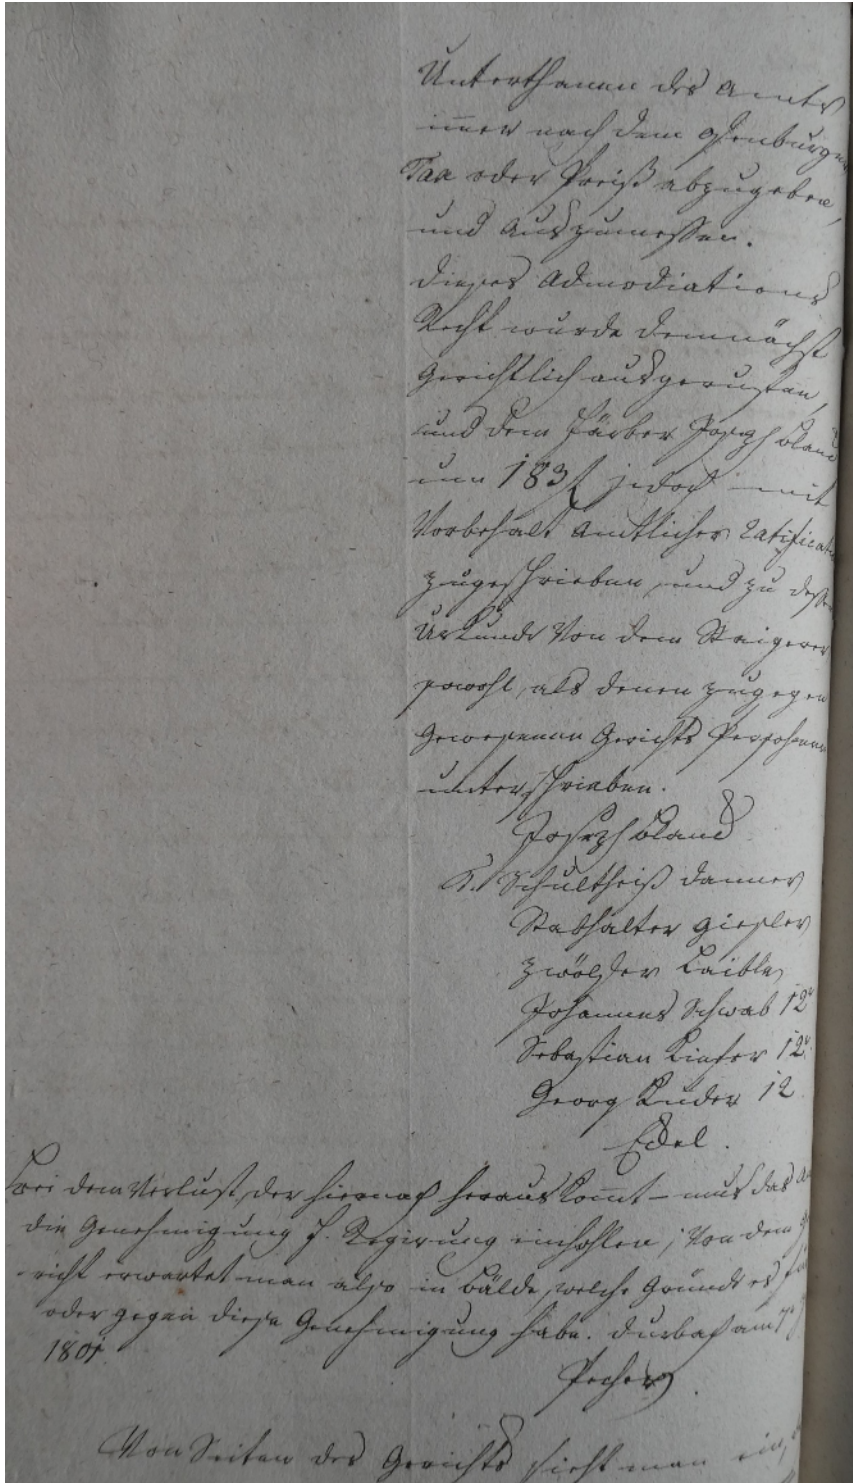 Unterthanen des Amts
immer nach dem Offenburger
Tax oder Preiß abzugeben,
und Auszumessen.
Dieses Admodiations
Recht wurde demnächst
Gerichtlich ausgerufen,
und dem Färber Joseph
um 183 f jedoch mit
Vorbehalt Amtlicher Ratification
zugeschrieben, und zu dessen
Urkunde Von dem Steigerer
sowohl, als denen zugegen
Gewesenen Gerichts Persohnen
unterschrieben.
Joseph
Schultheiß Danner
Stabhalter Giesler
Zwölfer Laible
Johannes Schwab 12er
Sebastian Kiefer 12er
Georg Kuder 12
Edel.
Bei dem Verlust, der hiernach herauskommt – mus das
die Genehmigung H. Regirung einhohlen; Von dem
richt erwartet man also in Bälde, welche Gründe es für
oder gegen diese Genehmigung habe. Durbach am 7n
1801.
Von Seiten des Gerichts sieht man ein,